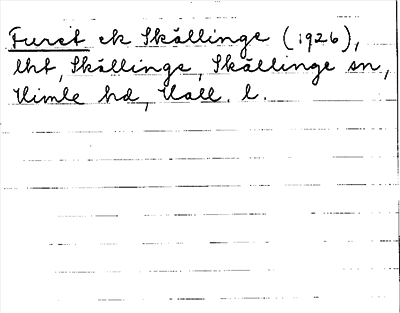 Furet ek Skällinge (1926),
lht, Skällinge, Skällinge sn,
Himle hd, Hall. l.